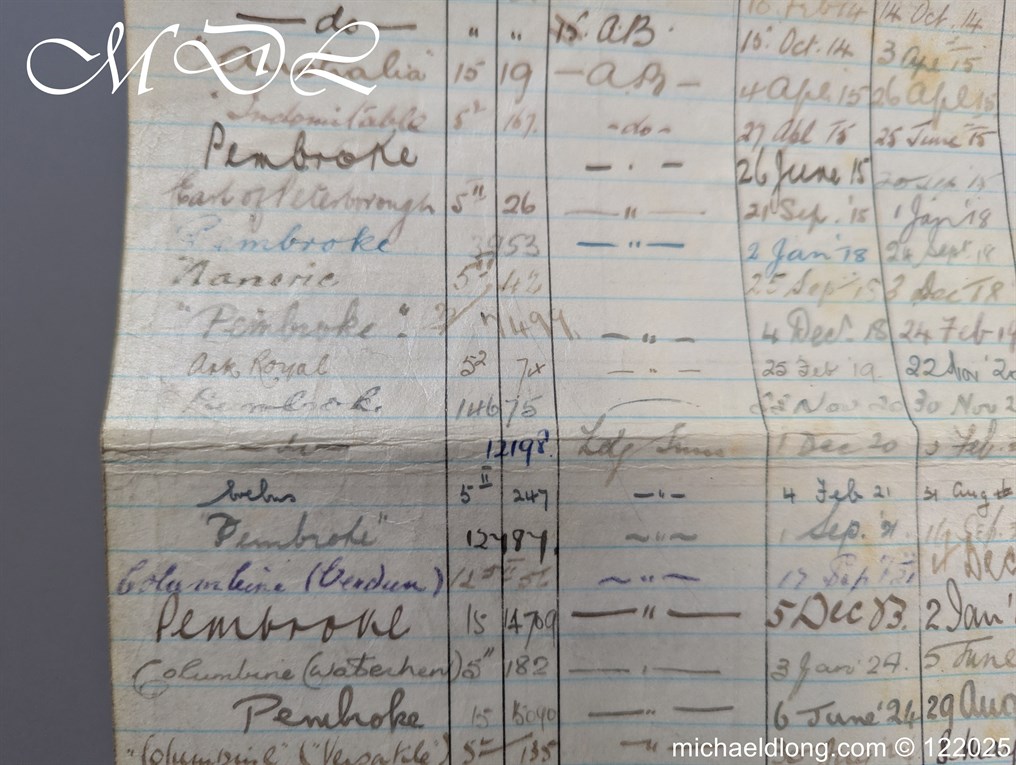 MDL
—do— " " 15. AB. 16 Feb 14 14. Oct. 14
"Australia" 15 19 —AB— 15. Oct. 14 3 Apl 15
"Indomitable 5² 167. -do- 4 Apl 15 26 Apl 15
Pembroke — . — 27 Apl 15 25 June 15
Earl of Peterborough 5" 26 — " — 26 June 15
Pembroke 3953 — " — 21 Sep. '15 1 Jan '18
5 42 2 Jan '18 24 Sept. 18
"Pembroke". 7499 — " — 25 Sep 3 Dec 18
Ark Royal 5² — " — 4 Dec. 18 24 Feb 19
Pembrok. 14675 25 Feb 19. 22 Nov '20
—do— 12198. Ldg 1 Dec 20 3 Feb.
Erebus 5 II 247 — " — 4 Feb 21 31 Aug
"Pembroke" — " — 1 Sep. '21 Sep
Columbine (Verdun) 12 — " — 17 Sep Dec
Pembroke 15 14709 — " — 5 Dec 23. 2 Jan '
Columbine (Waterhen) 5" 182 — " — 3 Jan '24. 5 June
Pembroke 15 15040 — " — 6 June '24 29 Aug
"Columbine" ("Versatile") 5 135 — " —
michaeldlong.com © 122025